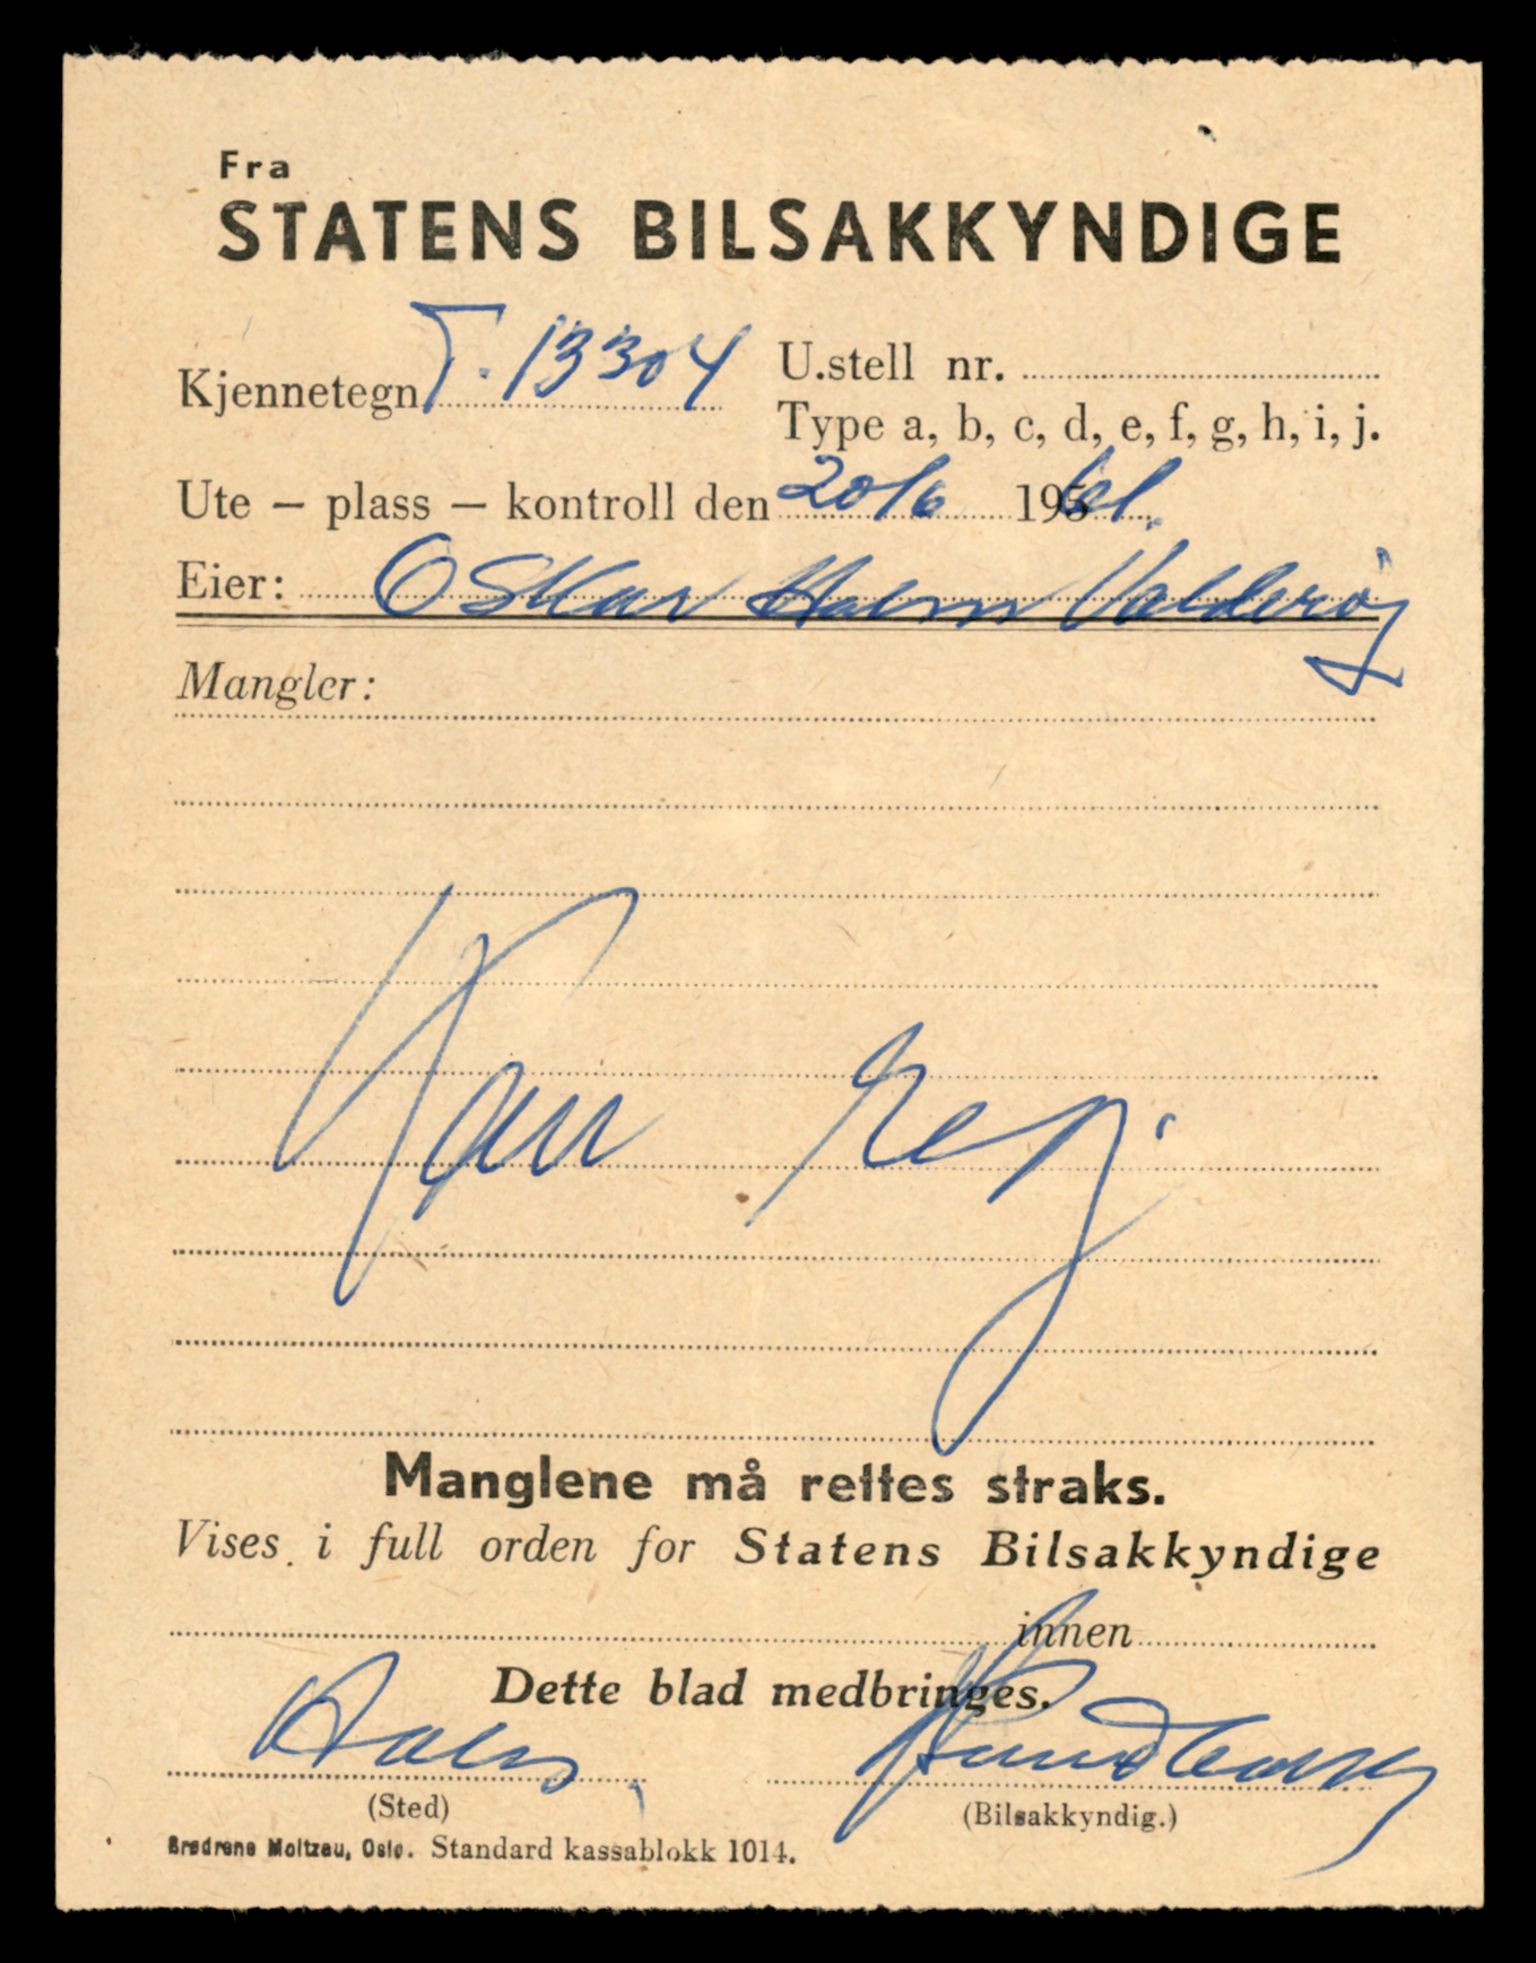 Fra
STATENS BILSAKKYNDIGE
Kjennetegn T. 13304 U.stell nr.
Type a, b, c, d, e, f, g, h, i, j.
Ute – plass – kontroll den 20/6 1961.
Eier: Oskar Holm Valderøy
Mangler:
Kan reg.
Manglene må rettes straks.
Vises i full orden for Statens Bilsakkyndige
innen
Dette blad medbringes.
(Sted) (Bilsakkyndig.)
Brødrene Moltzau, Oslo. Standard kassablokk 1014.